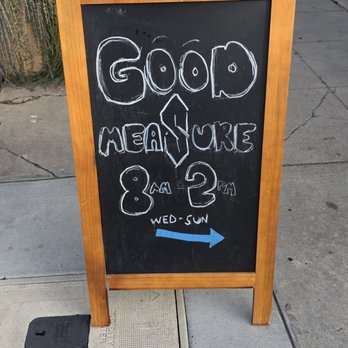 GOOD
MEASURE
8AM-2PM
WED-SUN